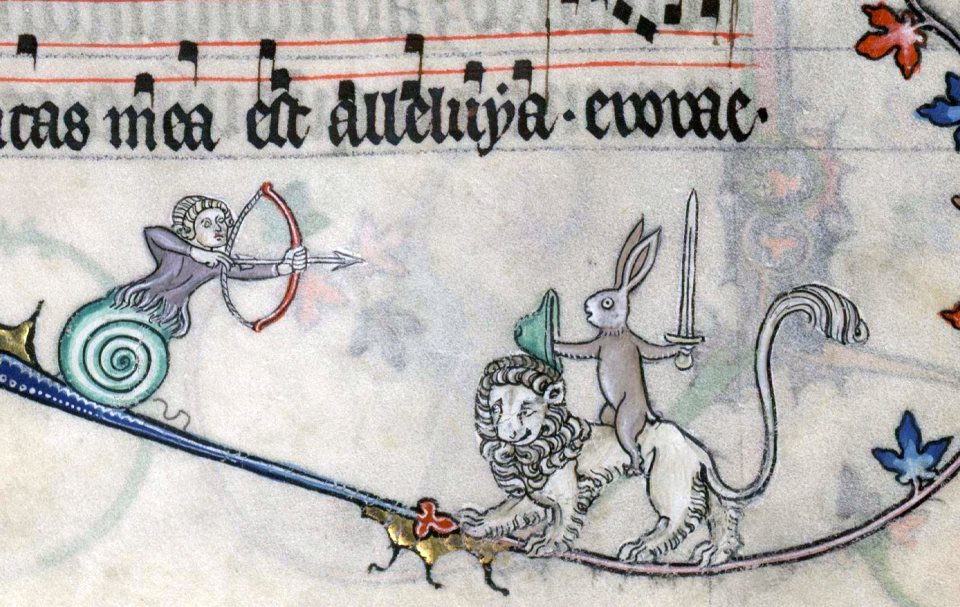 tas mea est alleluÿa · evovae ·